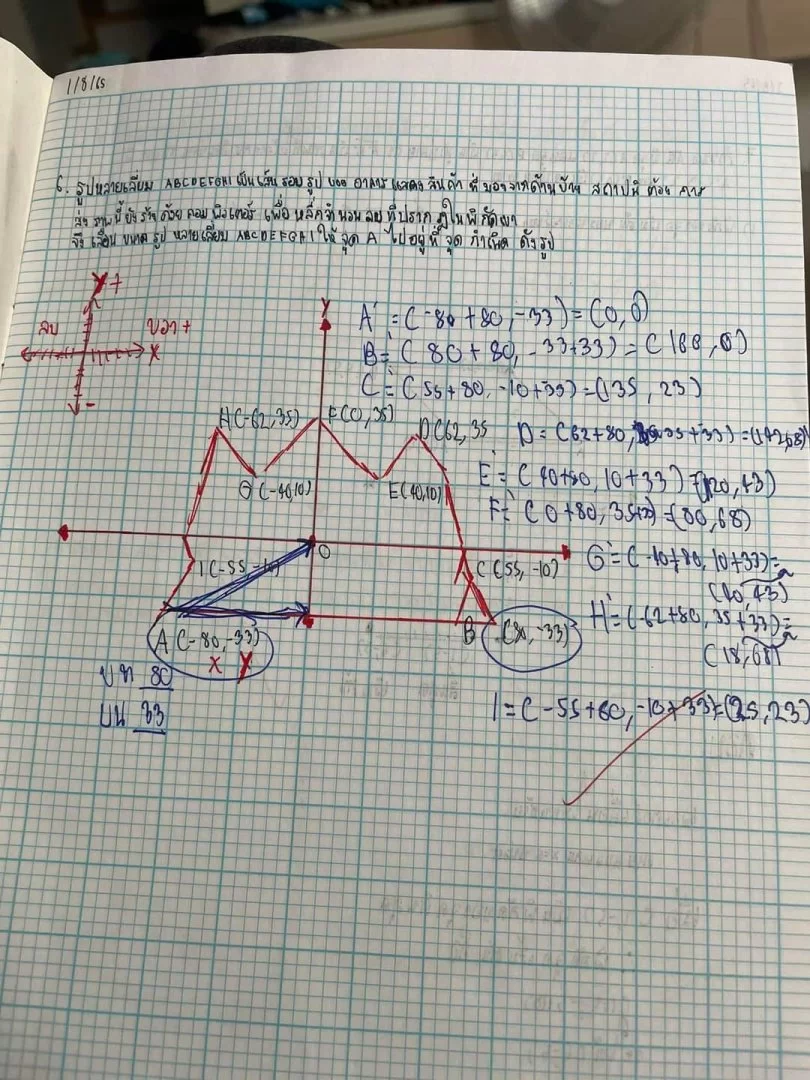 1/8/65
6. รูปหลายเลี่ยม ABCDEFGHI เป็นเส้นรอบรูป ของ อาคาร แสดง สินค้า ที่ มองจากด้านบ้าน สถาปนิ ต้อง การ
ภาพนี้ ด้วย คอม พิวเตอร์ เพื่อ หลีก จำนวน ลบ ที่ปรากฏในพิกัด
จึง เลื่อน ขนาด รูป หลายเลี่ยม ABCDEFGHI ให้ จุด A ไปอยู่ ที่ จุด กำเนิด ดังรูป
Y+
ลบ
ขวา+
X
-
Y
A' = (-80+80, -33) = (0, 0)
B' = (80+80, -33+33) = (160, 0)
C' = (55+80, -10+33) = (135, 23)
H(-62,35)
F(0,35)
D(62,35
D = (62+80, 35+33) = (142,68)
G(-40,10)
E(40,10)
E' = (40+80, 10+33) = (120, 43)
F' = (0+80, 35+33) = (80, 68)
O
I(-55 -10)
C(55, -10)
G' = (-40+80, 10+33) =
(40, 43)
A (-80, -33)
B (80, -33)
H' = (-62+80, 35+33) =
(18, 68)
X Y
ขวา 80
บน 33
I = (-55+80, -10+33) = (25, 23)